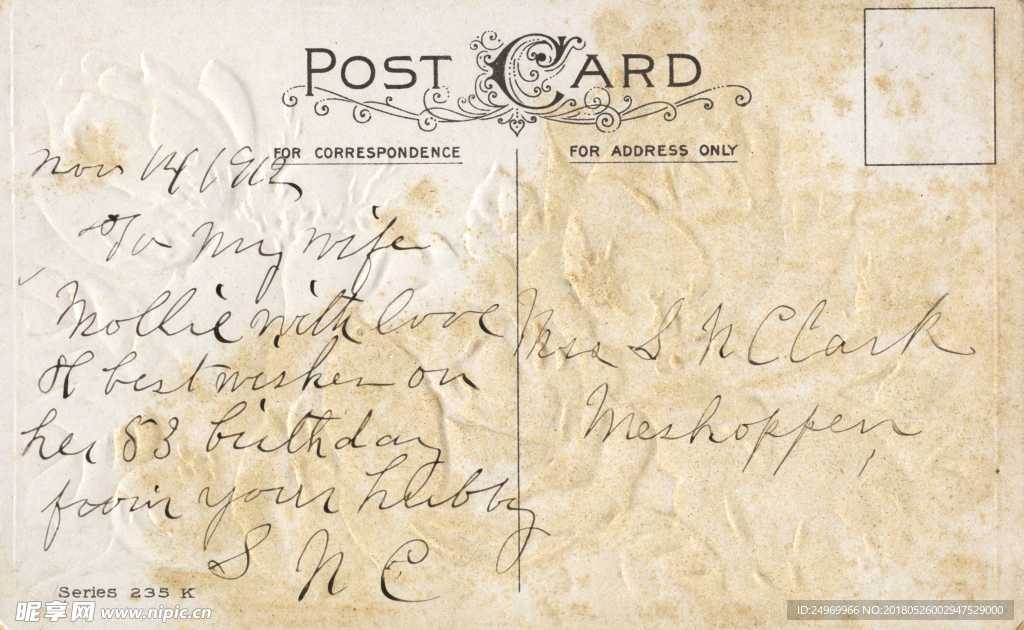 POST CARD
FOR CORRESPONDENCE
FOR ADDRESS ONLY
Nov 14 1912
To My wife
Mollie with love
& best wishes on
her 53 birthday
from your hubby
S N C
Mrs S N Clark
Meshoppen,
Series 235 K
昵享网 www.nipic.cn
ID:24969966 NO:20180526002947529000